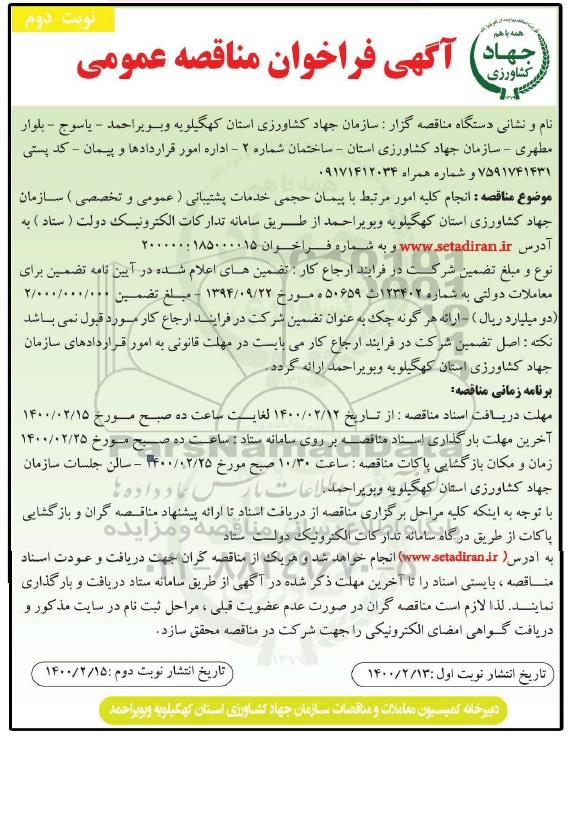 نوبت دوم
همه با هم
جهاد
کشاورزی
۱۳۷۹
آگهی فراخوان مناقصه عمومی
نام و نشانی دستگاه مناقصه گزار : سازمان جهاد کشاورزی استان کهگیلویه وبویراحمد - یاسوج - بلوار
مطهری - سازمان جهاد کشاورزی استان - ساختمان شماره ۲ - اداره امور قراردادها و پیمان - کد پستی
۷۵۹۱۷۴۱۴۳۱ و شماره همراه ۰۹۱۷۱۴۱۲۰۳۴
موضوع مناقصه : انجام کلیه امور مرتبط با پیمان حجمی خدمات پشتیبانی ( عمومی و تخصصی ) سازمان
جهاد کشاورزی استان کهگیلویه وبویراحمد از طریق سامانه تدارکات الکترونیک دولت ( ستاد ) به
آدرس www.setadiran.ir و به شماره فراخوان ۲۰۰۰۰۰۱۸۵۰۰۰۰۱۵
نوع و مبلغ تضمین شرکت در فرایند ارجاع کار : تضمین های اعلام شده در آیین نامه تضمین برای
معاملات دولتی به شماره ۱۲۳۴۰۲/ت ۵۰۶۵۹ ه مورخ ۱۳۹۴/۰۹/۲۲ - مبلغ تضمین ۲/۰۰۰/۰۰۰/۰۰۰
(دو میلیارد ریال) - ارائه هر گونه چک به عنوان تضمین شرکت در فرایند ارجاع کار مورد قبول نمی باشد
نکته : اصل تضمین شرکت در فرایند ارجاع کار می بایست در مهلت قانونی به امور قراردادهای سازمان
جهاد کشاورزی استان کهگیلویه وبویراحمد ارائه گردد.
برنامه زمانی مناقصه:
مهلت دریافت اسناد مناقصه : از تاریخ ۱۴۰۰/۰۲/۱۲ لغایت ساعت ده صبح مورخ ۱۴۰۰/۰۲/۱۵
آخرین مهلت بارگذاری اسناد مناقصه بر روی سامانه ستاد : ساعت ده صبح مورخ ۱۴۰۰/۰۲/۲۵
زمان و مکان بازگشایی پاکات مناقصه : ساعت ۱۰/۳۰ صبح مورخ ۱۴۰۰/۰۲/۲۵ - سالن جلسات سازمان
جهاد کشاورزی استان کهگیلویه وبویراحمد.
با توجه به اینکه کلیه مراحل برگزاری مناقصه از دریافت اسناد تا ارائه پیشنهاد مناقصه گران و بازگشایی
پاکات از طریق درگاه سامانه تدارکات الکترونیک دولت ستاد
به آدرس( www.setadiran.ir) انجام خواهد شد و هریک از مناقصه گران جهت دریافت و عودت اسناد
مناقصه ، بایستی اسناد را تا آخرین مهلت ذکر شده در آگهی از طریق سامانه ستاد دریافت و بارگذاری
نمایند. لذا لازم است مناقصه گران در صورت عدم عضویت قبلی ، مراحل ثبت نام در سایت مذکور و
دریافت گواهی امضای الکترونیکی را جهت شرکت در مناقصه محقق سازد.
تاریخ انتشار نوبت اول :۱۴۰۰/۲/۱۳
تاریخ انتشار نوبت دوم :۱۴۰۰/۲/۱۵
دبیرخانه کمیسیون معاملات و مناقصات سازمان جهاد کشاورزی استان کهگیلویه وبویراحمد